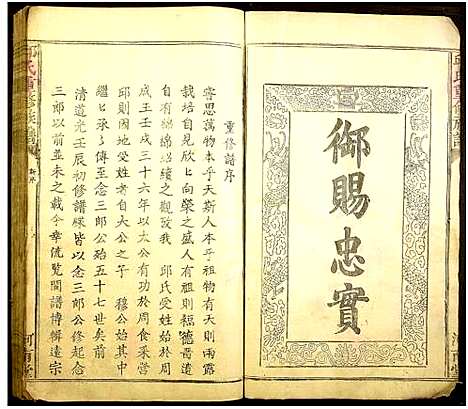 邱氏重修族譜
御賜忠實
河南堂
重修譜序
寧思萬物本乎天斯人本乎祖物有天則雨露
栽培自見欣ヒ向榮之盛人有祖則福德善遺
自有綿綿續續之觀哉我 邱氏受姓始於周
成王壬戌三十六年以太公有功於周食采營
邱則因地受姓者自大公之子 穆公始其中
繼ヒ承ヒ傳至念三郎公始五十七世矣前
清道光壬辰初修譜牒皆以念三郎公修起念
三郎以前並未之載今幸流覽閩譜博輯遠宗
邱氏重修族譜
新序
河南堂